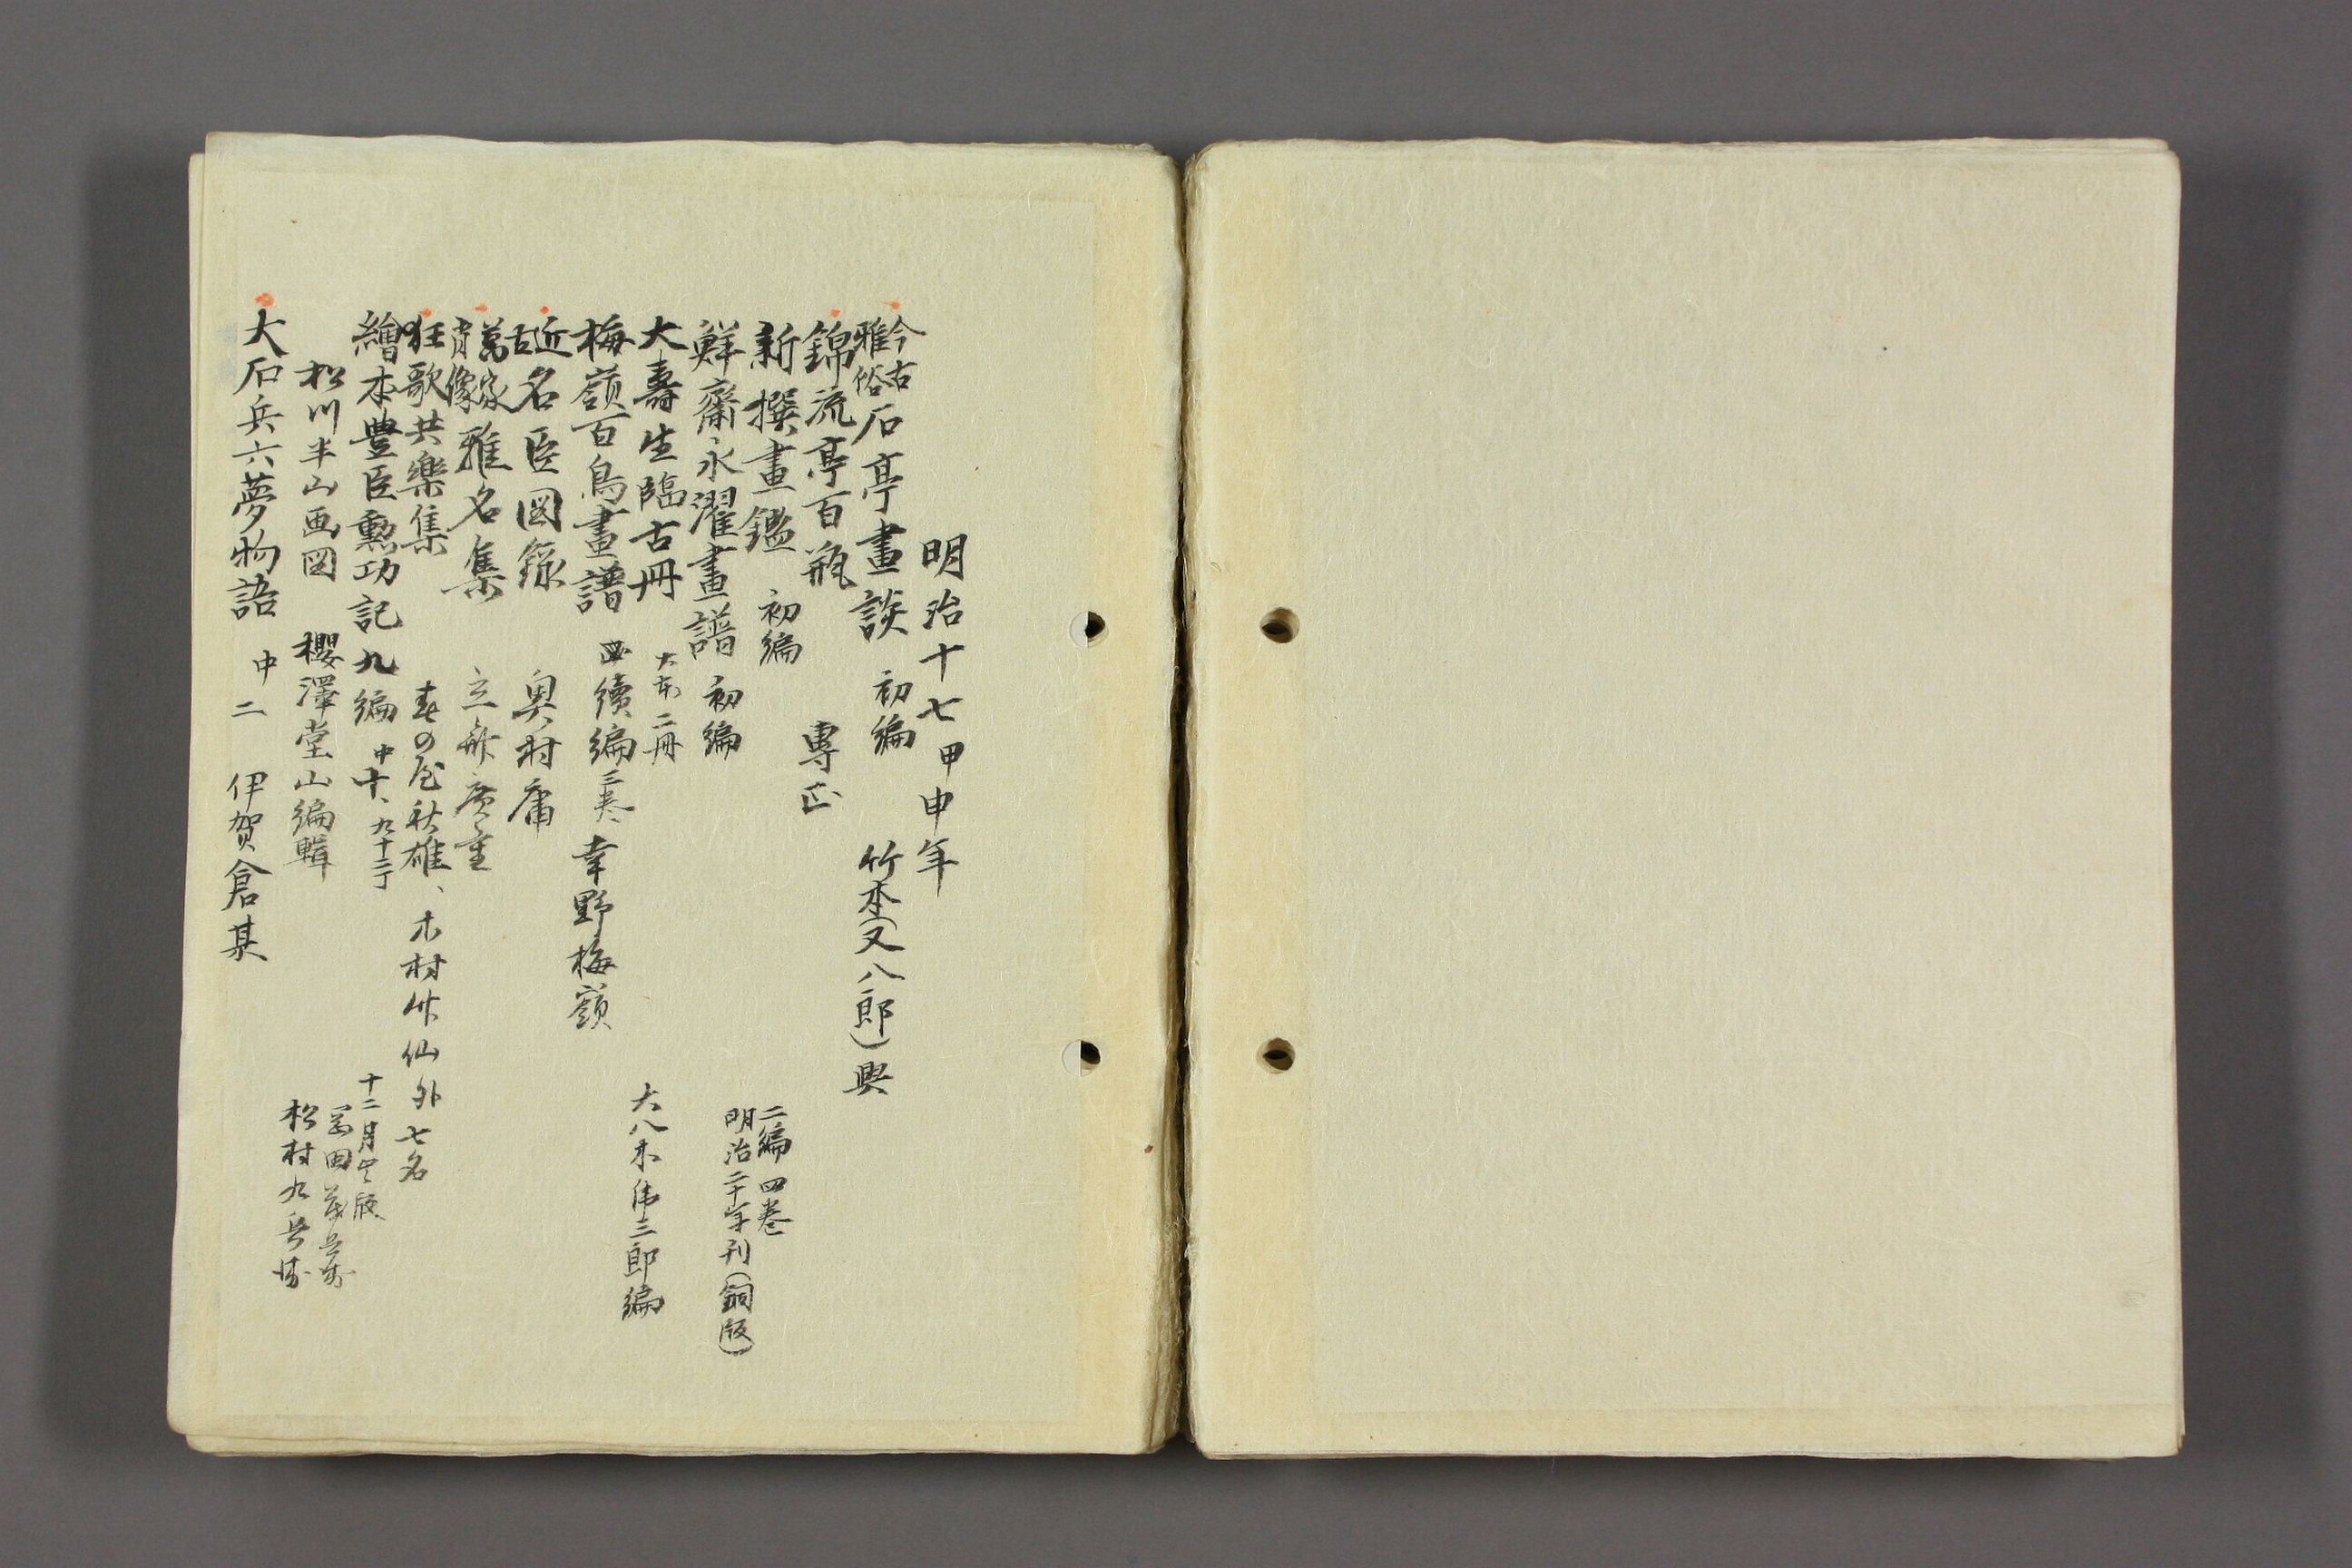 明治十七甲申年
今古雅俗石亭畫談 初編 竹本(又八郎)興
錦流亭百瓶 專正
新撰畫鑑 初編
二編 四巻
明治二十年刊(銅版)
鮮齋永濯畫譜 初編
大壽生臨古冊 大本 二冊 大八木偉三郎編
梅嶺百鳥畫譜 續編 三巻 幸野梅嶺
近古名臣図録 奥村庸
萬家肖像雅名集 立齋広重
狂歌共樂集 春の屋秋雄、木村竹仙外七名
繪本豊臣勲功記九編 中十、九十二丁 十二月出版
松川半山画図 櫻澤堂山編輯
岡田茂兵衛
松村九兵衛
大石兵六夢物語 中二 伊賀倉某